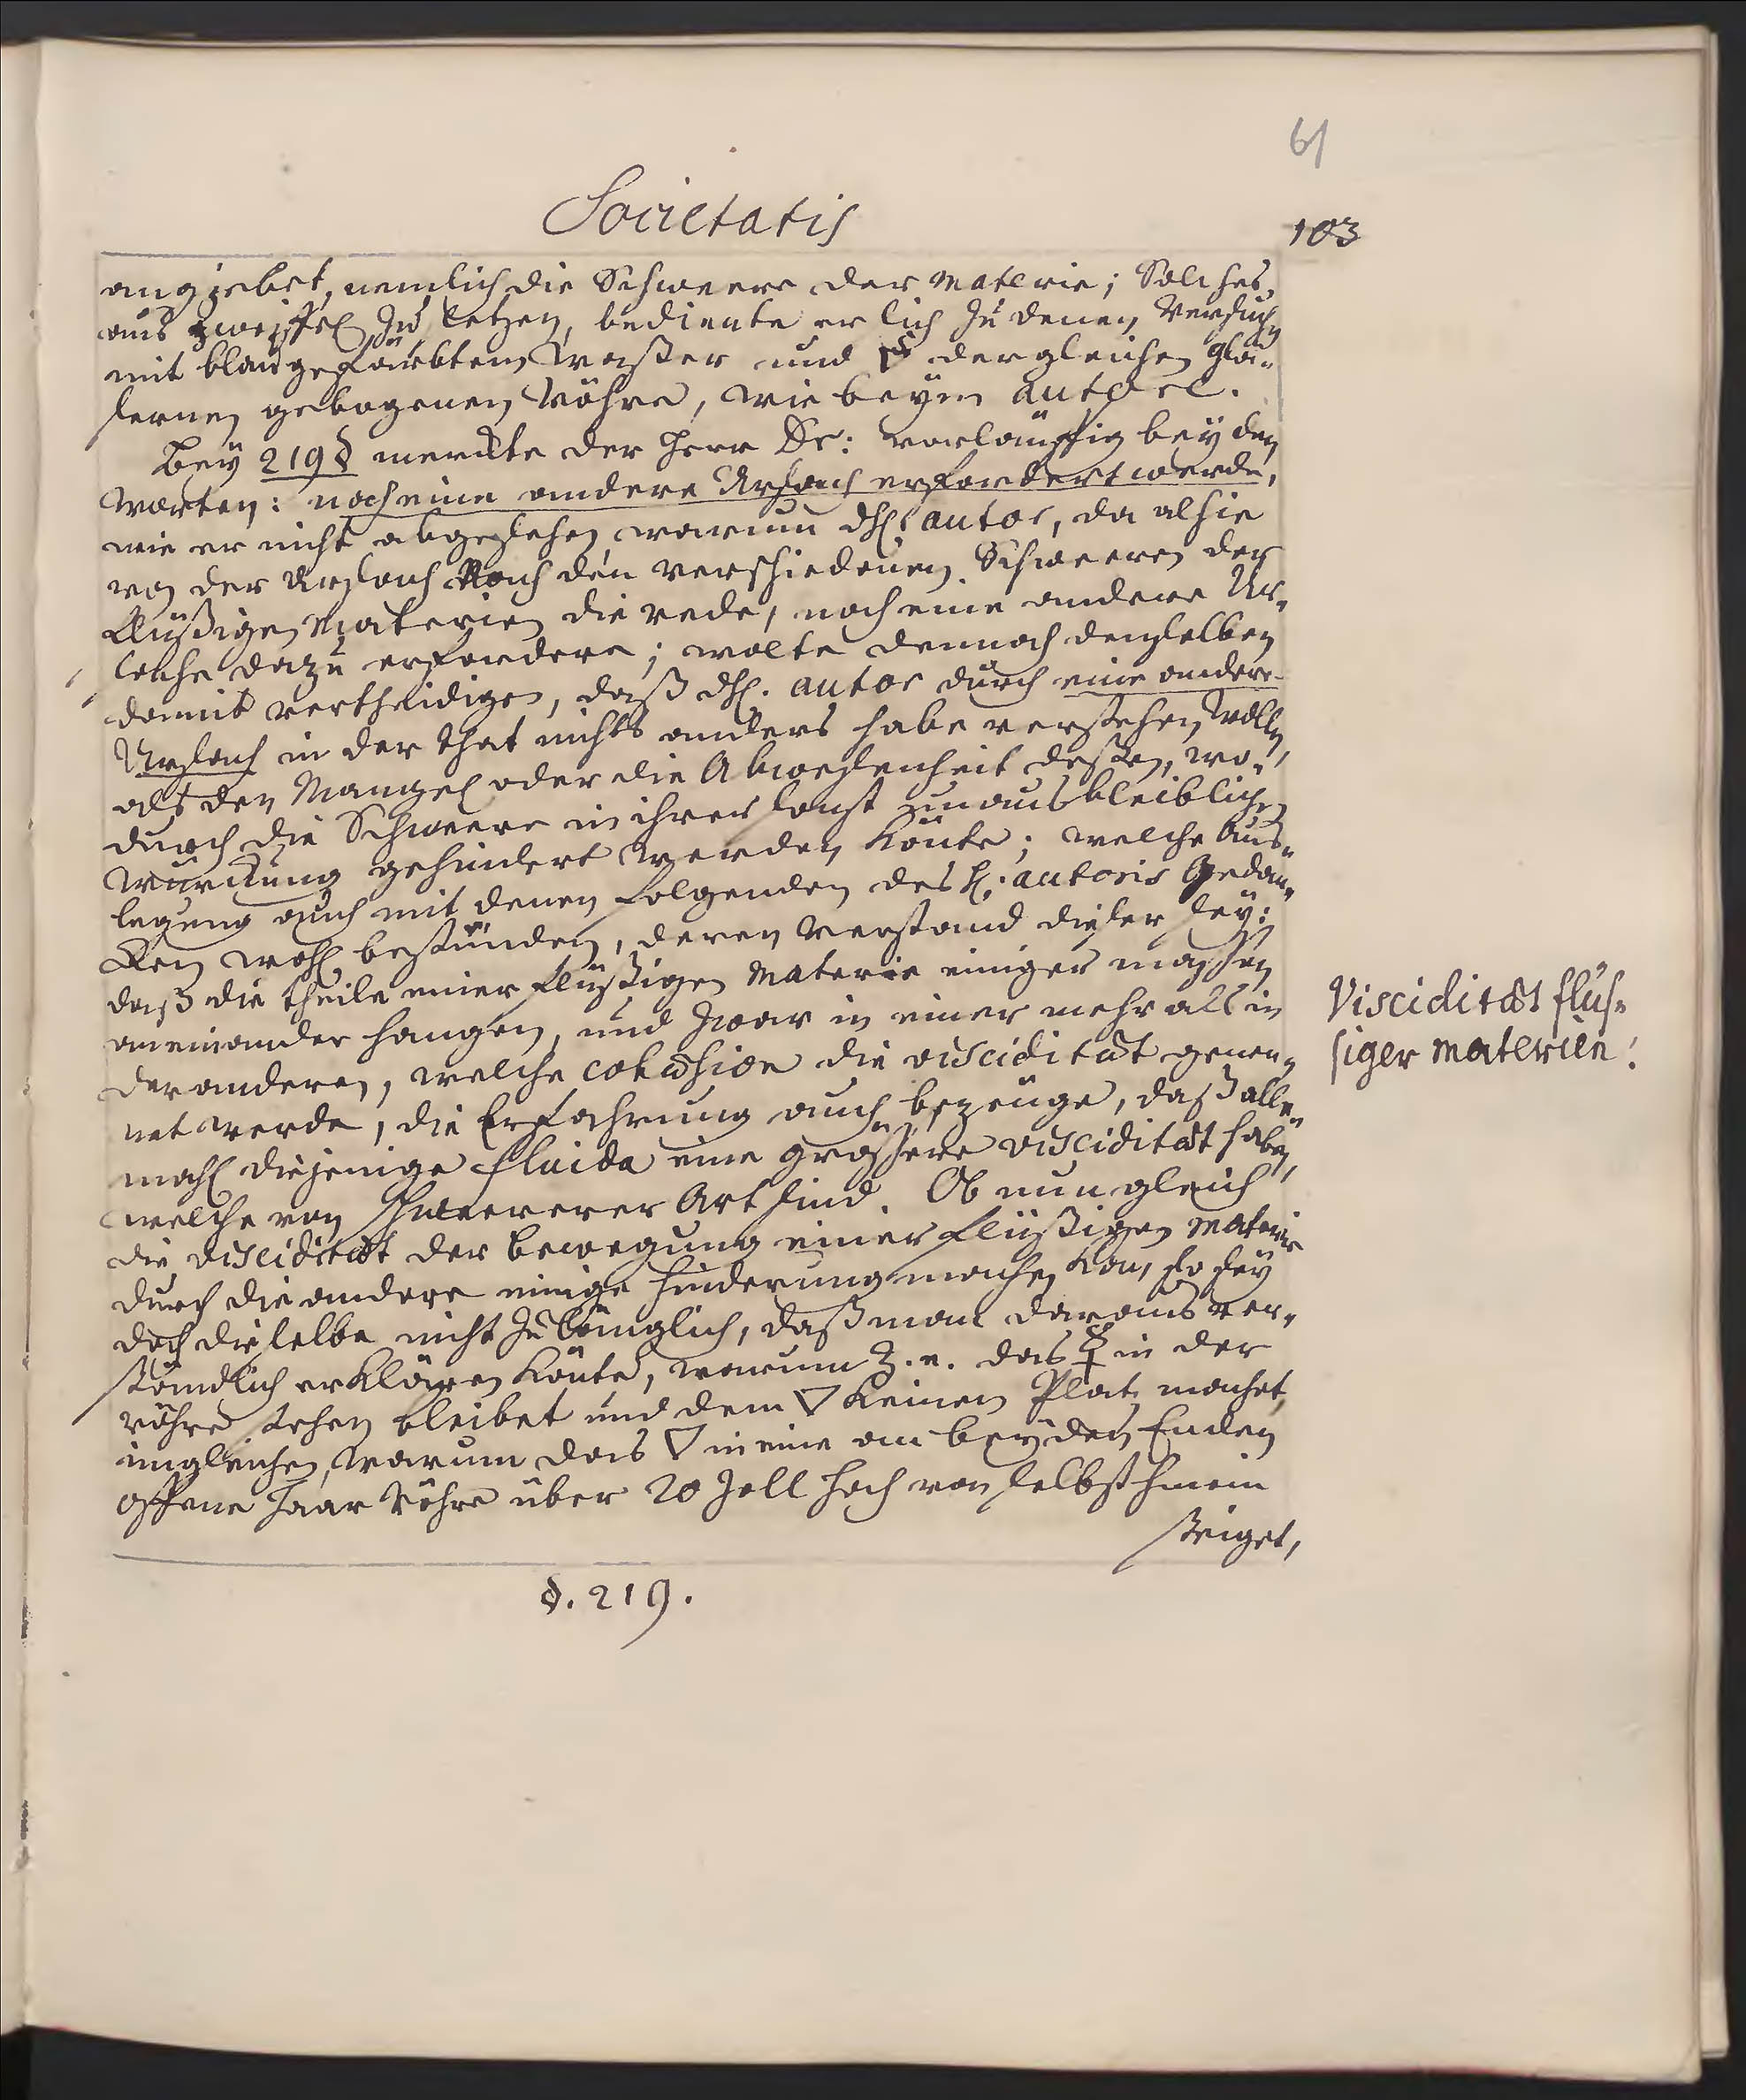 61
Societatis
103
angiebet, nemlich die Schweere der materie; Solches
aus zweiffel zu setzen, bediente er sich zu denen Versuchen
mit blau gefärbtem Waßer und ☿ dergleichen glä-
sernen gebogenen Röhre, wie beym autore.
Bey 219 § merckte der Herr Dr: vorläuffig bey den
Worten: noch eine andere Ursach erfordert werde,
wie er nicht abgesehen, warum dH. autor, da alhie
von der Ursach nach den verschiedenen Schweeren der
flüßigen Materien die rede, noch eine andere Ur-
sache dazu erfordere; wolte dennoch denselben
damit vertheidigen, daß dH. autor durch eine andere
Ursach in der that nichts anders habe verstehen wollen,
als den Mangel oder die Abwesenheit deßen, wo-
durch die Schweere in ihrer sonst unausbleiblichen
Würckung gehindert werden könte; welche Aus-
legung auch mit denen folgenden des H. autoris Gedan-
cken wohl bestünden, deren Verstand dieser sey:
daß die theile einer flüßigen Materie einiger massen
aneinander hangen, und zwar in einer mehr als in
der anderen, welche cohæsion die viscidität genen-
net werde, die Erfahrung auch bezeuge, daß alle-
mahl diejenige fluida eine grössere viscidität haben,
welche von schweererer Art sind. Ob nun gleich
die viscidität der bewegung einer flüßigen Materie
durch die andere einige hinderung machen kan, so sey
doch dieselbe nicht zulänglich, daß man daraus ver-
ständlich erklären könte, warum z. e. das ☿ in der
röhre stehen bleibet und dem ▽ keinen Platz machet,
imgleichen, warum das ▽ in eine an beyden Enden
offene Haar Röhre über 20 Zoll hoch von selbst hinein
steiget,
§. 219.
Viscidität flüs-
siger materien.